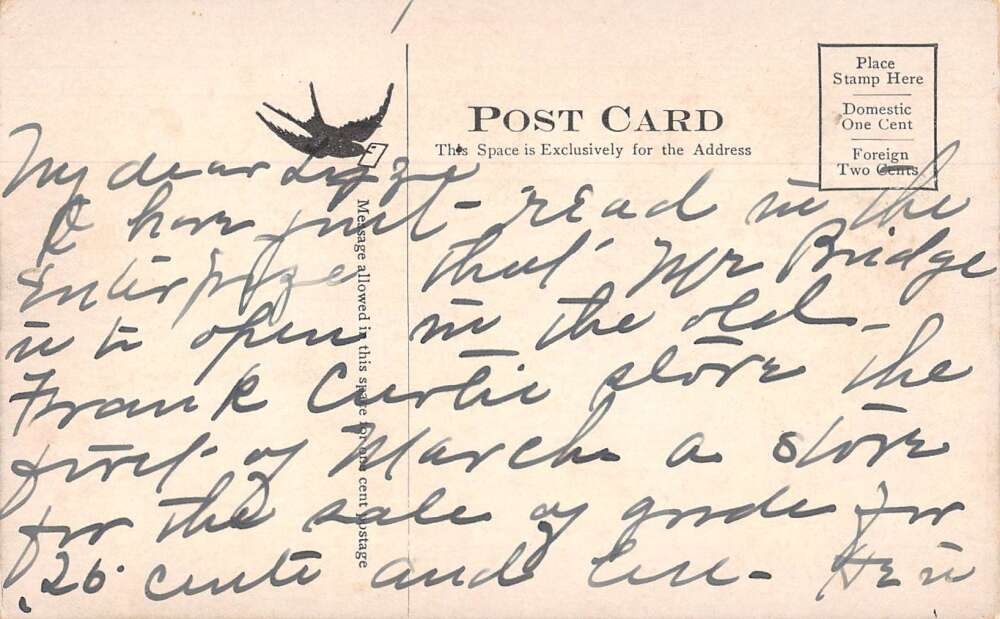 Place
Stamp Here
Domestic
One Cent
Foreign
Two Cents
POST CARD
This Space is Exclusively for the Address
Message allowed in this space for one cent postage
My dear Lizzie
I have just read in the
Enterprize that Mr Bridge
is to open in the old
Frank Curtis store the
first of March a store
for the sale of goods for
25 cents and less - He is